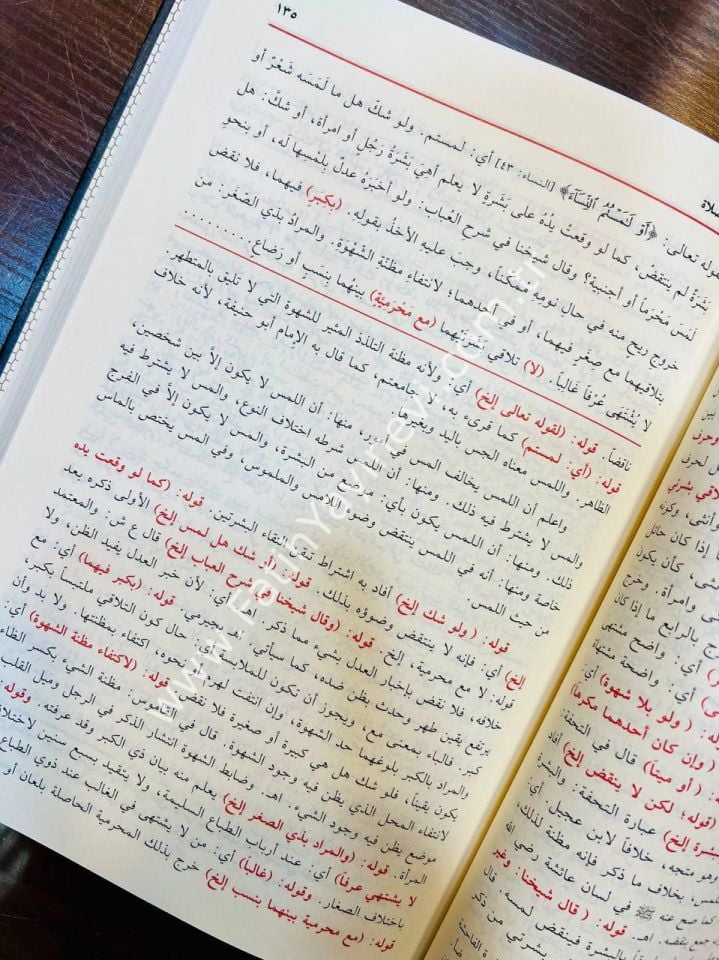 ١٣٥
قوله تعالى: ﴿أَوْ لَٰمَسْتُمُ ٱلنِّسَآءَ﴾ [النساء: ٤٣] أي: لمستم. ولو شكّ هل ما لَمَسَه شَعْرٌ أو
بَشَرَةٌ لم ينتقض، كما لو وقعتْ يدُهُ على بَشَرَةٍ لا يعلم أهيَ بَشَرَةُ رَجُلٍ أو امرأة، أو شكّ: هل
لَمَسَ مَحْرَماً أو أجنبية؟ وقال شيخنا في شرح العُباب: ولو أخبَرَهُ عدلٌ بلمْسِها لَه، أو بنحوِ
خروجِ ريحٍ منه في حال نومِهِ مُمَكِّناً، وجب عليه الأخذُ بقوله. (بكبر) فيهما، فلا نقض
بتلاقيهما مع صِغَرٍ فيهما، أو في أحدهما؛ لانتفاء مظنّة الشّهْوَة. والمرادُ بذي الصّغر: من
لا يُشْتَهى عُرْفاً غالِباً. (لا) تلاقي بشرتيهما (مع مَحْرَمِيَّةٍ) بينهُما بنسبٍ أو رضاعٍ..........
ناقضاً. قوله: (لقوله تعالى إلخ) أي: ولأنه مظنة التلذذ المثير للشهوة التي لا تليق بالمتطهر.
قوله: (أي: لمستم) كما قرىء به، لا جامعتم، كما قال به الإمام أبو حنيفة، لأنه خلاف
الظاهر. واللمس معناه الجس باليد وبغيرها.
واعلم أن اللمس يخالف المس في أمور، منها: أن اللمس لا يكون إلا بين شخصين،
والمس لا يشترط فيه ذلك. ومنها: أن اللمس شرطه اختلاف النوع، والمس لا يشترط فيه
ذلك. ومنها: أن اللمس يكون بأي: موضع من البشرة، والمس لا يكون إلّا في الفرج
خاصة ومنها: أنه في اللمس ينتقض وضوء اللامس والملموس، وفي المس يختص بالماس
من حيث اللمس.
قوله: (ولو شك إلخ) أفاد به اشتراط تيقن التقاء البشرتين. قوله: (كما لو وقعت يده
إلخ) أي: فإنه لا ينتقض وضوؤه بذلك. قوله: (ولو شك هل لمس إلخ) الأولى ذكره بعد
قوله: لا مع محرمية، إلخ. قوله: (وقال شيخنا في شرح العباب إلخ) قال ع ش: والمعتمد
خلافه، فلا نقض بإخبار العدل بشيء مما ذكر. أي: لأن خبر العدل يفيد الظن، ولا
يرتفع يقين طهر وحدث بظن ضده، كما سيأتي. اهـ بجيرمي. قوله: (بكبر فيهما) أي: مع
كبر. فالباء بمعنى مع، ويجوز أن تكون للملابسة، أي: حال كون التلاقي ملتبساً بكبر
والمراد بالكبر بلوغهما حد الشهوة، وإن انتفت لهرم ونحوه، اكتفاء بمظنتها. ولا بد وأن
يكون يقيناً، فلو شك هل هي كبيرة أو صغيرة فلا نقض. قوله: (لانتفاء مظنة الشهوة) أي:
لانتفاء المحل الذي يظن فيه وجود الشهوة. قال في القاموس: مظنة الشيء بكسر الظاء
موضع يظن فيه وجود الشيء. اهـ. وضابط الشهوة انتشار الذكر في الرجل وميل القلب
المرأة. قوله: (والمراد بذي الصغر إلخ) يعلم منه بيان ذي الكبر وقد عرفته. وقوله
لا يشتهى عرفاً) أي: عند أرباب الطباع السليمة، ولا يتقيد بسبع سنين لاختلاف
باختلاف الصغار. وقوله: (غالباً) أي: من لا يشتهى في الغالب عند ذوي الطباع
قوله: (مع محرمية بينهما بنسب إلخ) خرج بذلك المحرمية الحاصلة بلعان أو
www.FatihYayinevi.com.tr